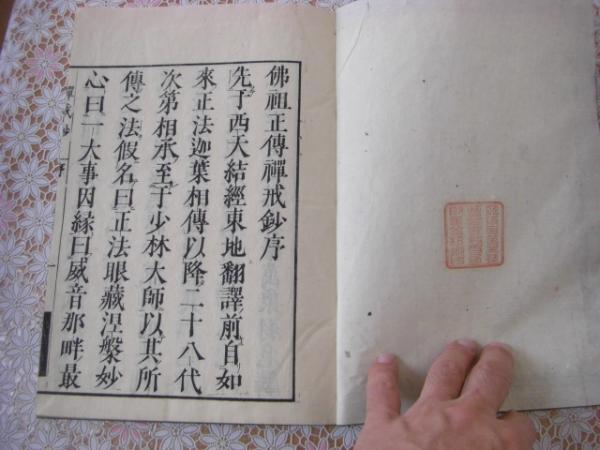 佛祖正傳禪戒鈔序
先于西天結經東地翻譯前自如
來正法迦葉相傳以降二十八代
次第相承至于少林大師以其所
傳之法假名曰正法眼藏涅槃妙
心曰一大事因緣曰威音那畔最
禪戒鈔 序